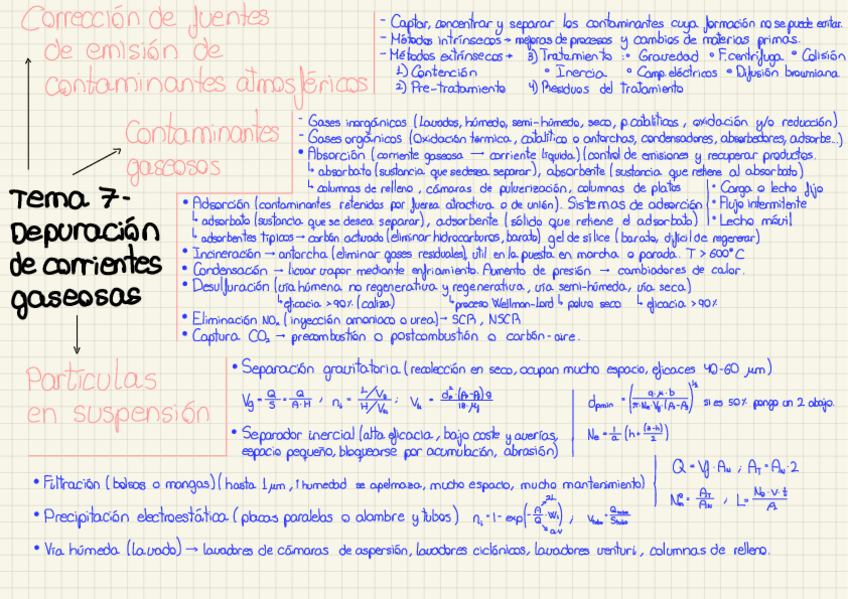 Corrección de fuentes
de emisión de
contaminantes atmosféricos
- Captar, concentrar y separar los contaminantes cuya formación no se puede evitar.
- Métodos intrínsecos → mejoras de procesos y cambios de materias primas.
- Métodos extrínsecos → 3) Tratamiento : • Gravedad • F. centrífuga • Colisión
1) Contención • Inercia • Camp. eléctricos • Difusión browniana
2) Pre-tratamiento 4) Residuos del tratamiento
Contaminantes
gaseosos
- Gases inorgánicos (Lavados, húmedo, semi-húmedo, seco, p.catalíticas, oxidación y/o reducción)
- Gases orgánicos (Oxidación térmica, catalítica o antorchas, condensadores, absorbedores, adsorbe...)
• Absorción (corriente gaseosa → corriente líquida) (control de emisiones y recuperar productos.
↳ absorbato (sustancia que se desea separar), absorbente (sustancia que retiene al absorbato)
↳ columnas de relleno, cámaras de pulverización, columnas de platos
Tema 7-
Depuración
de corrientes
gaseosas
• Adsorción (contaminantes retenidos por fuerza atractiva o de unión). Sistemas de adsorción
• Carga o lecho fijo
• Flujo intermitente
• Lecho móvil
↳ adsorbato (sustancia que se desea separar), adsorbente (sólido que retiene el adsorbato)
↳ adsorbentes típicos → carbón activado (eliminar hidrocarburos, barato) gel de sílice (barato, difícil de regenerar)
• Incineración → antorcha (eliminar gases residuales), útil en la puesta en marcha o parada. T > 600°C
• Condensación → licuar vapor mediante enfriamiento. Aumento de presión → cambiadores de calor.
• Desulfuración (vía húmena no regenerativa y regenerativa, vía semi-húmeda, vía seca)
↳ eficacia >90% (caliza) ↳ proceso Wellman-Lord ↳ polvo seco ↳ eficacia >90%
• Eliminación NOx (inyección amoniaco o urea) → SCR, NSCR
• Captura CO₂ → precombustión o postcombustión o carbón-aire.
Partículas
en suspensión
• Separación gravitatoria (recolección en seco, ocupan mucho espacio, eficaces 40-60 μm)
si es 50% pongo un 2 abajo.
• Separador inercial (alta eficacia, bajo coste y averías,
espacio pequeño, bloquearse por acumulación, abrasión)
• Filtración (bolsas o mangas) (hasta 1μm, ↑humedad se apelmaza, mucho espacio, mucho mantenimiento)
• Precipitación electroestática (placas paralelas o alambre y tubos)
• Vía húmeda (lavado) → lavadores de cámaras de aspersión, lavadores ciclónicos, lavadores venturi, columnas de relleno.